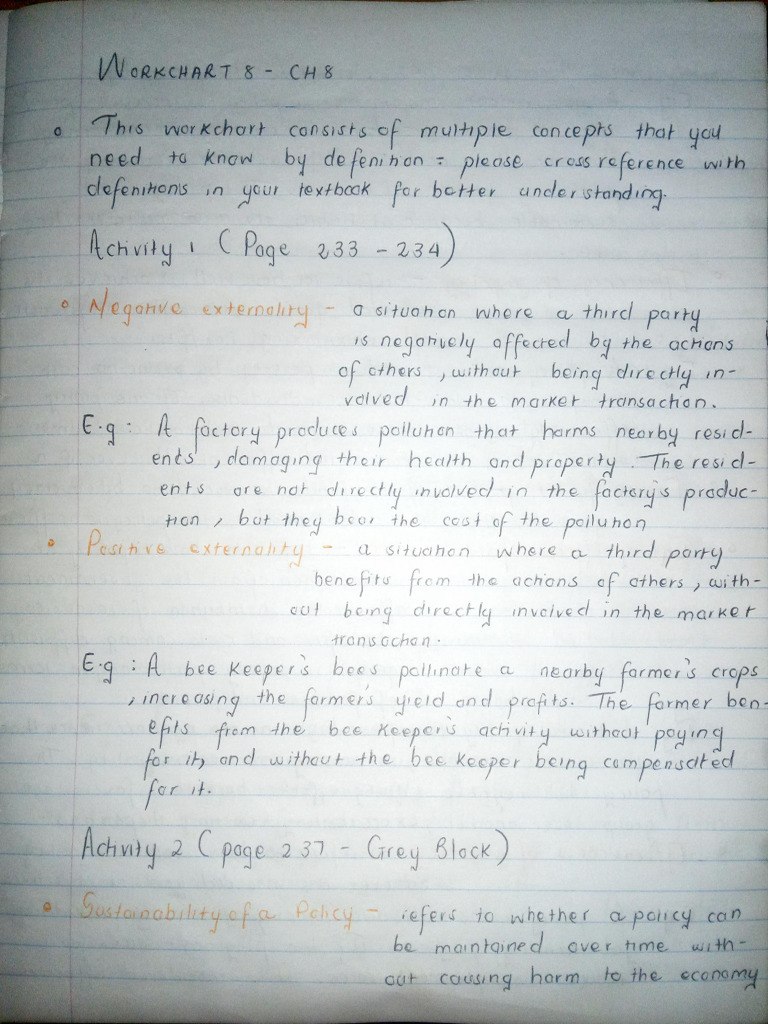 WORKCHART 8 - CH 8
This workchart consists of multiple concepts that you
need to know by defenition = please cross reference with
defenitions in your textbook for better understanding.
Activity 1 (Page 233 - 234)
Negative externality - a situation where a third party
is negatively affected by the actions
of others , without being directly in-
volved in the market transaction.
E.g : A factory produces pollution that harms nearby resid-
ents , damaging their health and property . The resid-
ents are not directly involved in the factory's produc-
tion , but they bear the cost of the pollution
Positive externality - a situation where a third party
benefits from the actions of others , with-
out being directly involved in the market
transaction.
E.g : A bee keeper's bees pollinate a nearby farmer's crops
, increasing the farmer's yield and profits. The farmer ben-
efits from the bee keeper's activity without paying
for it, and without the bee keeper being compensated
for it.
Activity 2 (page 237 - Grey Block)
Sustainability of a Policy - refers to whether a policy can
be maintained over time with-
out causing harm to the economy